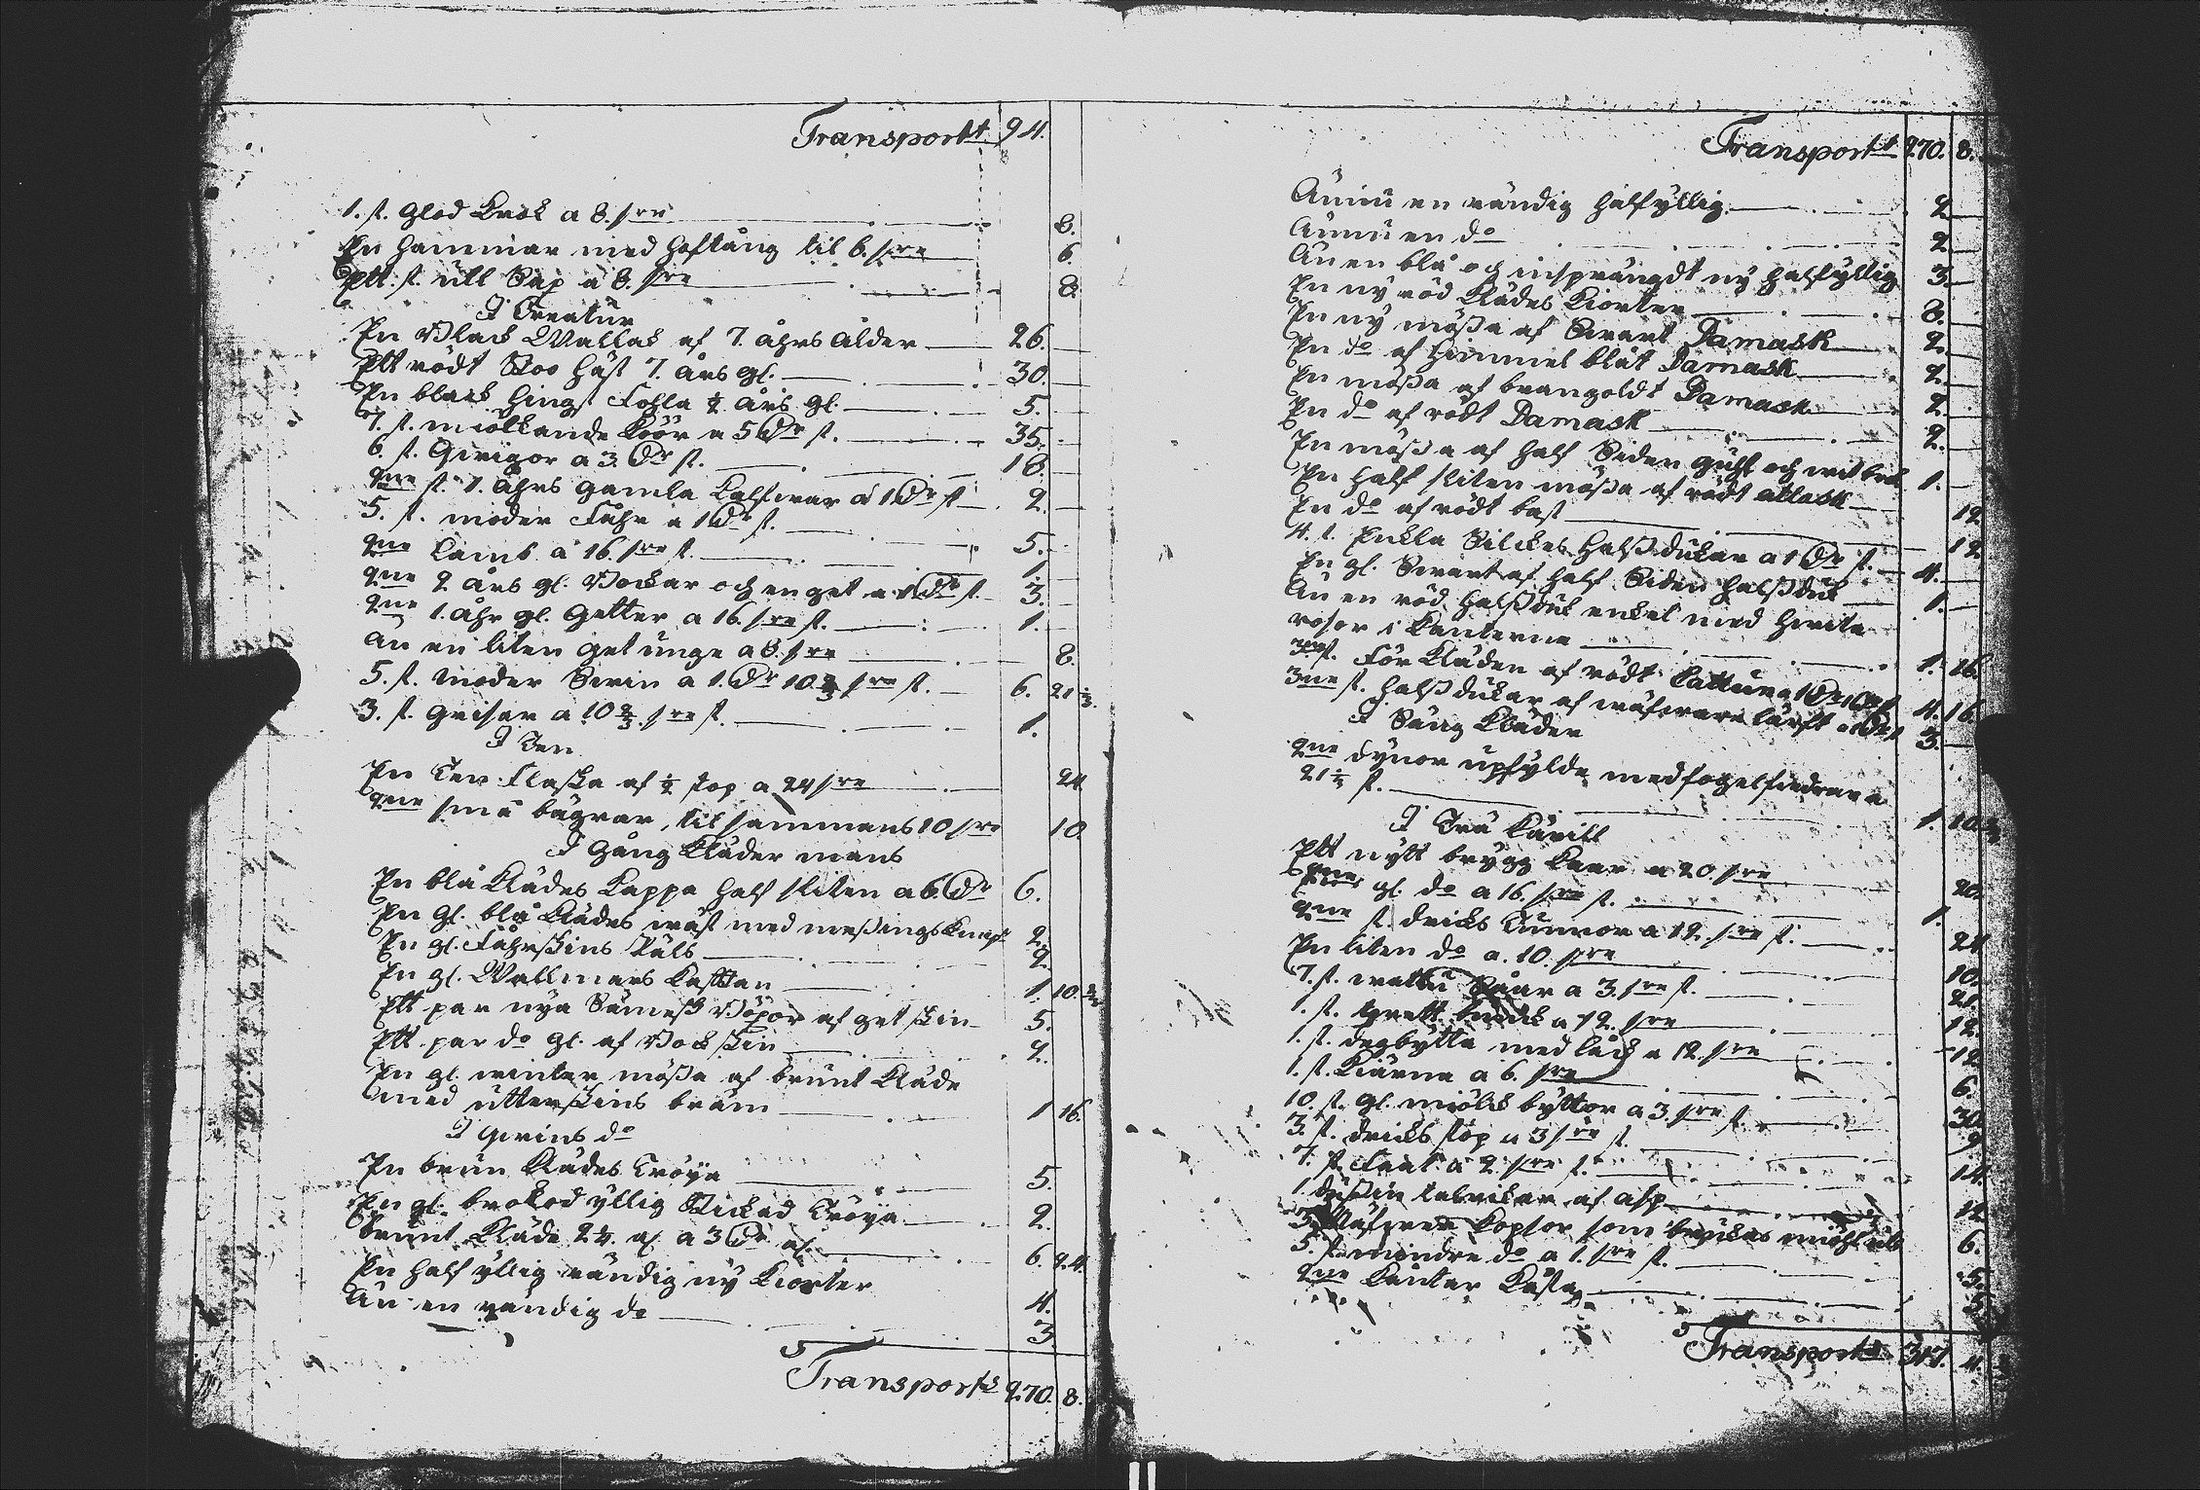 Transportt 94.
1. st. Glod Krok a 8. sre 8.
En hammar med Hoftång til 6. sre 6.
Ett. st. ull Sax a 8. sre 8.
I Creatur
En Black Wallak af 7. åhrs ålder 26.
Ett rödt Stoo häst 7. års gl. 30.
En black hingst Fohla ½ års gl. 5.
7. st. miölkande Koör a 5 Dr st. 35.
6. st. Qvigor a 3. Dr st. 18.
2ne st. 1. åhrs gamla Kalfwar a 1 Dr st 2.
5. st. moder Fåhr a 1 Dr st. 5.
2ne Lamb a 16 sre st. 1
2ne 2 års gl. Bockar och en get a 1 Dr st 3.
2ne 1. åhr gl. Getter a 16. sre st. 1.
Än en liten get unge a 8. sre 8.
5. st. moder Swin a 1. Dr 10 2/3 sre st. 6. 21 1/3.
3. st. grisar a 10 2/3. sre st. 1.
I Ten
En Ten Flaska af ½ stop a 24 sre 24
2ne små bägrar, til sammans 10 sre 10
I Gång Kläder mans
En blå Klädes Kappa half sliten a 6. Dr 6.
En gl. blå Klädes wäst med messings Knap 2.
En gl. Fåhrskins Päls 2.
En gl. Wallmars Kafftan 1. 10 2/3
Ett par nya Sämesk Böxor af get skin 5.
Ett par do gl. af Bock skin 2.
En gl. winter mössa af brunt Kläde
med utterskins bräm 1 16.
I Qwins do
En brun Klädes Tröija 5.
En gl. brokod yllig Stickad Tröija 2.
brunt Kläde 2¼. al. a 3 Dr al. 6. 24.
En half yllig rändig ny Kiortel 4.
Än en rändig do 3
Transports 270. 8.
Transportt 270. 8.
Ännu en rändig halfyllig 2
Ännu en do 2
Än en blå och insprängdt ny halfyllig 3.
En ny röd Klädes Kiortel 8.
En ny mössa af Swart Damask 2.
En do af himmel blåt Damask 2.
En mössa af brangoldt Damask 2.
En do af rödt Damask 2.
En mössa af half Siden guhl och wit 1.
En half sliten mössa af rödt Attlask 12
En do af rödt bast 12
4. st. Enkla Silckes Halssdukar a 1 Dr st. 4.
En gl. Swart af half Siden halssduk 1.
Än en röd halssduk enkel med hwita
rosor i Kanterne 1. 16.
3ne st. För Kläden af rödt Cattun a 1 Dr 16 sre st 4. 16.
3ne st. halssdukar af wäfware lärft a 1 Dr st 3.
I Säng Kläder
2ne dynor upfylde med fogelfiedrar a
21 1/3 st. 1. 10 2/3
I Trä Kärill
Ett nytt brygg Kaar a 20. sre 20.
2ne gl. do a 16. sre st. 1.
2ne st. dricks Tunnor a 12. sre st. 24
En liten do a. 10. sre 10.
7. st. wattu Såar a 3. sre st. 21.
1. st. a 12. sre 12
1. st. degbytta med låck a 12. sre 12
1. st. Kiärna a 6. sre 6.
10. st. gl. miölck byttor a 3. sre st. 30
3. st. dricks stop a 3 sre st. 9
7. st. Faat a 2. sre st. 14
1 dussin talrickar af asp 12
3. Kopsor som brukas 6.
5. st. mindre do a 1. sre st. 5.
2ne 3
Transports 317. 11.